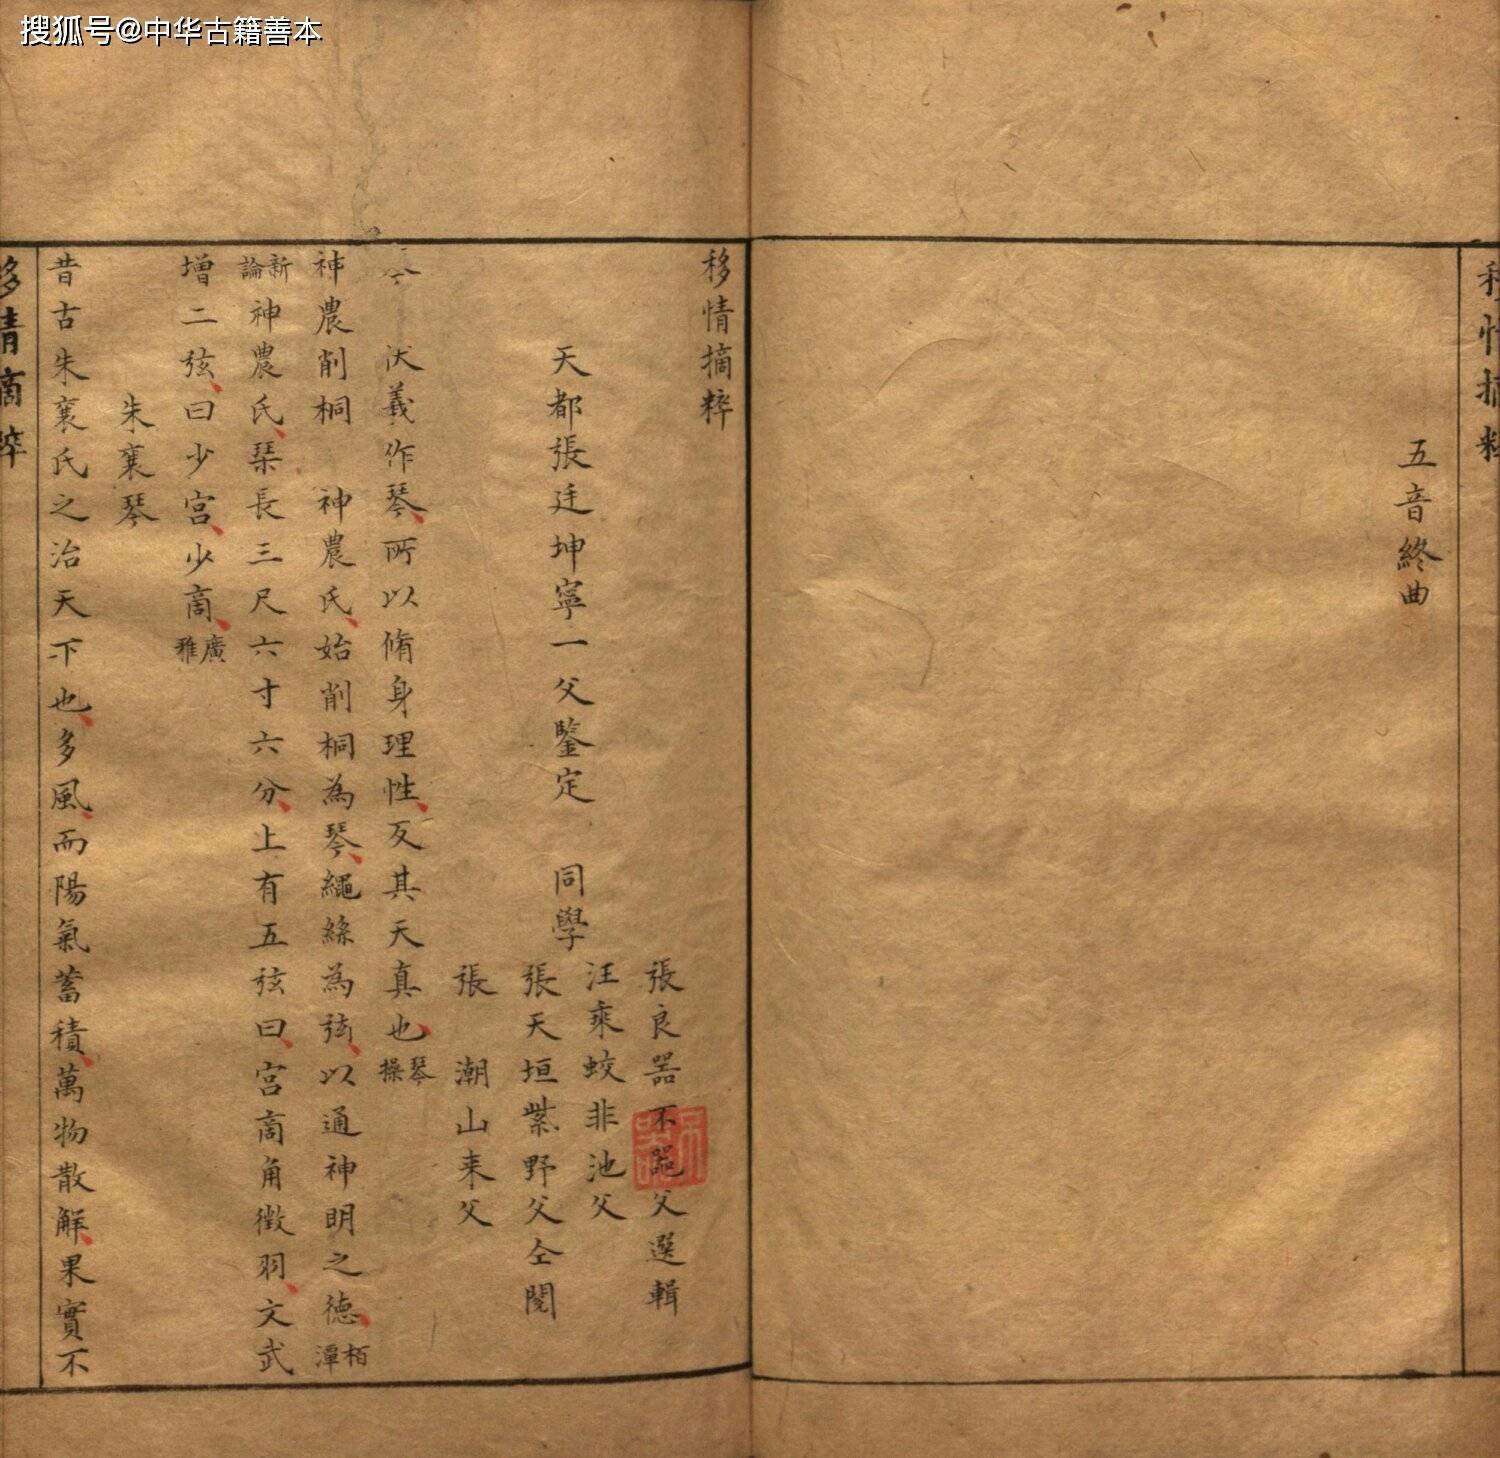 搜狐号@中华古籍善本
五音終曲
移情摘粹
張良器不器父選輯
汪乘蛟非池父
天都張廷坤寧一父鑒定 同學
張天垣紫野父仝閱
張 潮山来父
琴 伏羲作琴所以脩身理性反其天真也琴操
神農削桐 神農氏始削桐為琴繩絲為弦以通神明之德桓譚
新論神農氏琹長三尺六寸六分上有五弦曰宮商角徵羽文武
增二弦曰少宮少商廣雅
朱襄琴
昔古朱襄氏之治天下也多風而陽氣蓄積萬物散解果實不
移情摘粹